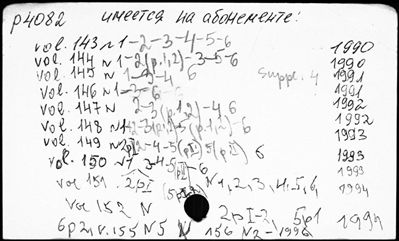 р4082 имеется на абонементе:
vol. 143 N 1-2-3-4-5-6 1990
vol. 144 N 1-2(p.1,2)-3-5-6 1990
vol. 145 N 1-3-4 6 Suppl. 4 1991
vol. 146 N 1-3-6-6 1991
vol. 147 N 2-3(p.1,2)-4 6 1992
vol. 148 1992
vol. 149 1993
vol. 150 N 1 3-4-5 -6 1993
vol 151. 2pI N 1,2,3,4.5,6, 1994
vol 152 N 2pI-2, 5p1 1994
6p2, v.155 N5 N 156 N2-1996